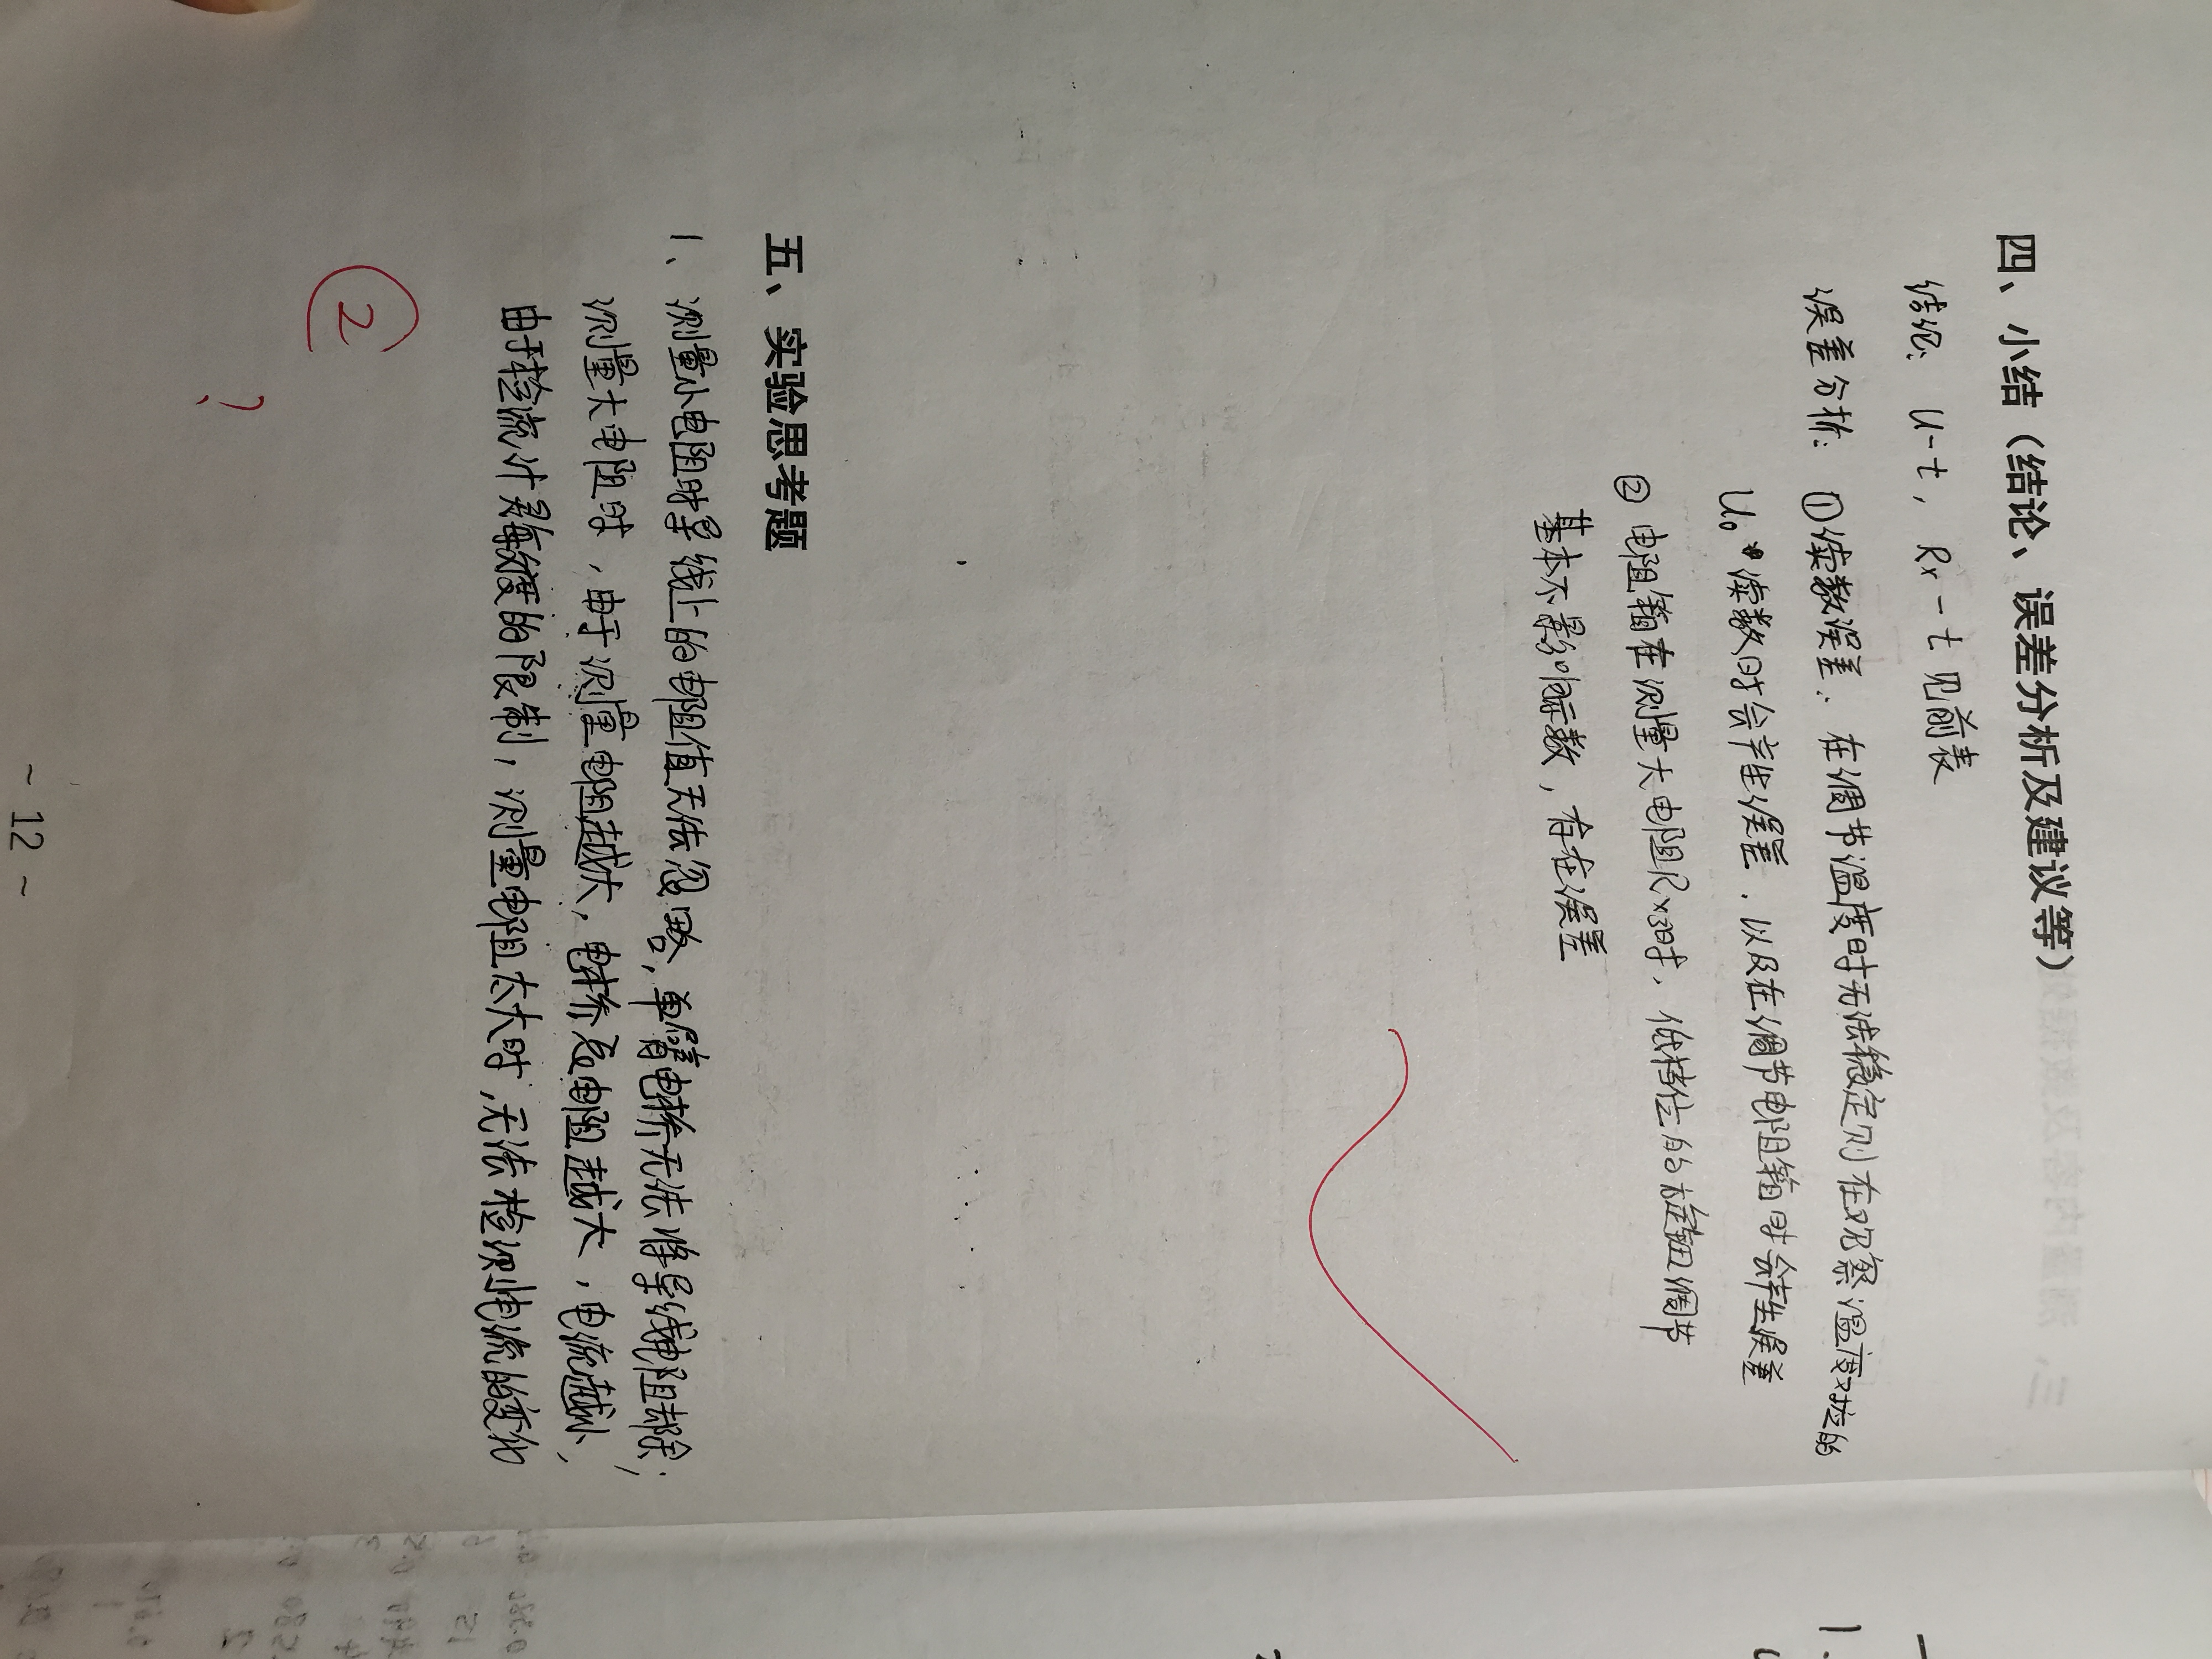 四、小结（结论、误差分析及建议等）
结论：U-t，Rx-t见前表
误差分析：①读数误差：在调节温度时无法稳定则在观察温度对应的
U₀读数时会产生误差．以及在调节电阻箱时会产生误差
②电阻箱在测量大电阻Rx3时，低档位的旋钮调节
基本不影响示数，存在误差
五、实验思考题
1、测量小电阻时导线上的电阻值无法忽略，单臂电桥无法将导线电阻去除；
测量大电阻时，由于测量电阻越大，电桥总电阻越大，电流越小，
由于检流计灵敏度的限制，测量电阻太大时，无法检测电流的变化
②
?
~ 12 ~
1.